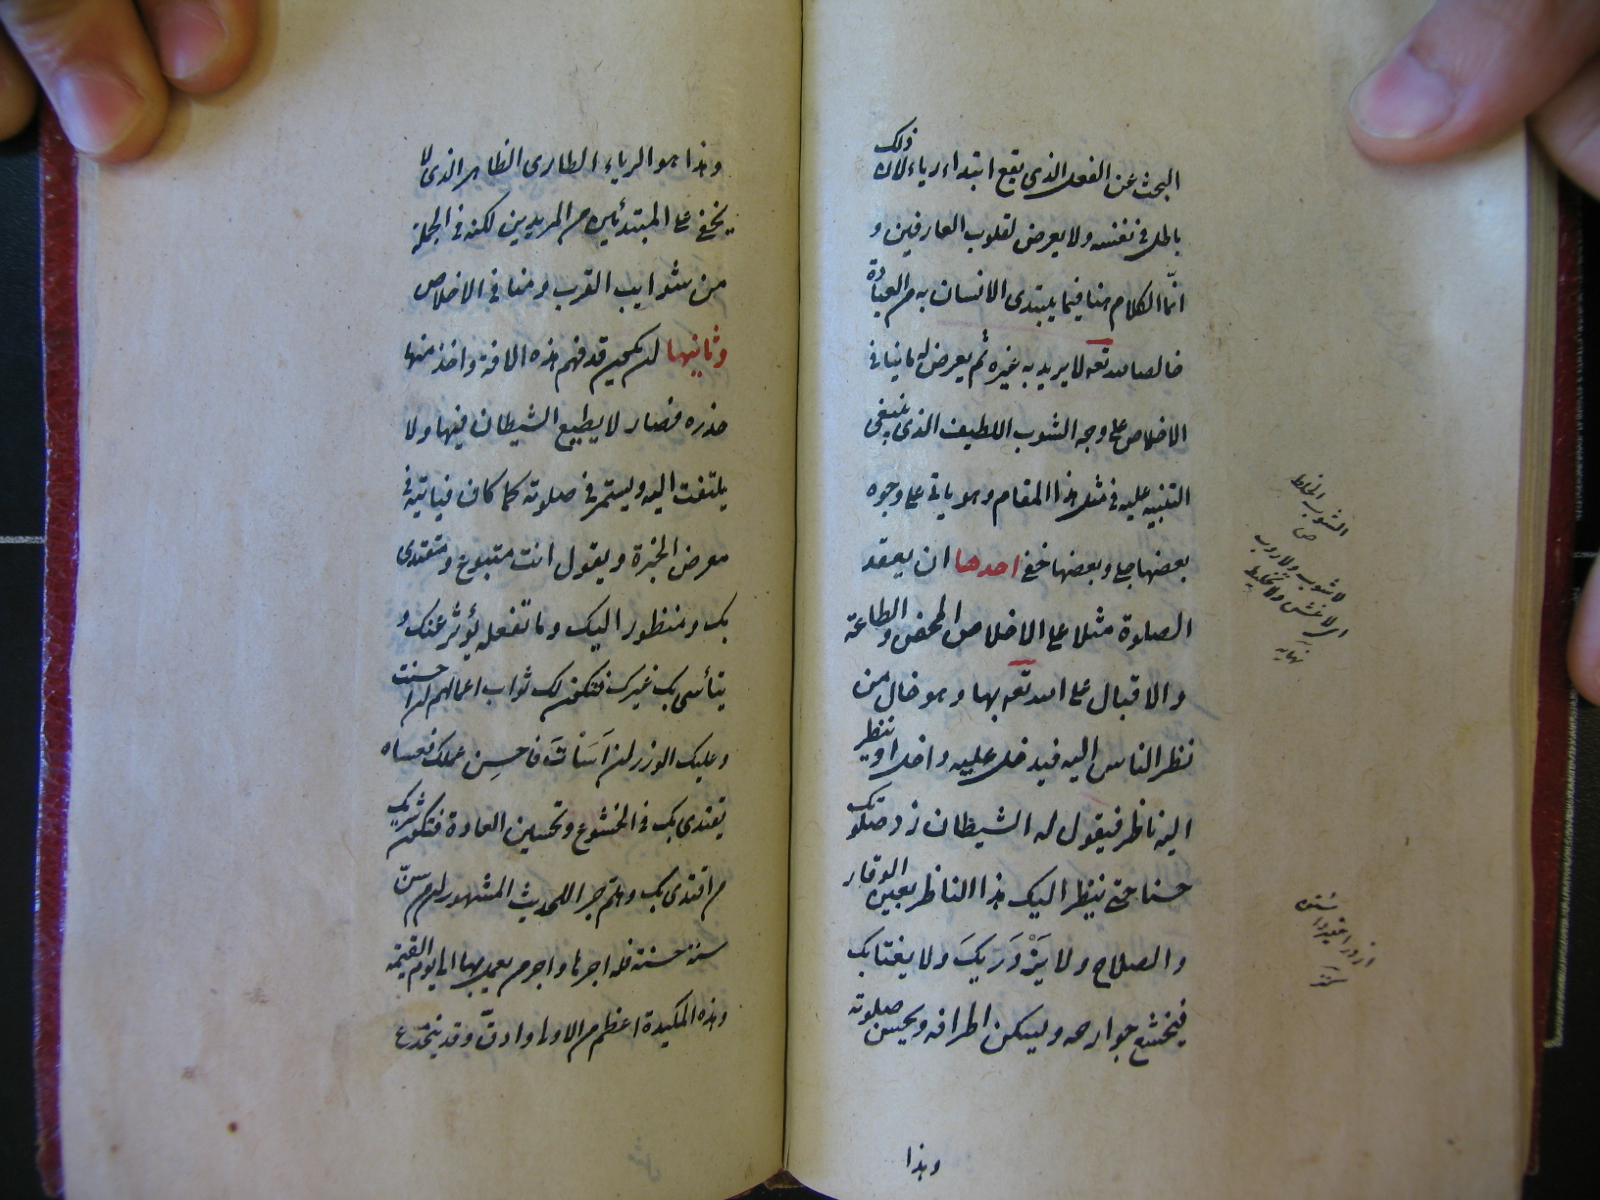 البحث عن الفعل الذى يقع ابتداء رياء لان ذلك
باطل فى نفسه ولا يعرض لقلوب العارفين و
انّما الكلام هنا فيما يبتدى الانسان به من العبادة
خالصا لله تعه لا يريد به غيره ثم يعرض له ما ينافى
الاخلاص على وجه الشوب اللطيف الذى ينبغى
التنبيه عليه فى مثل هذا المقام وهو ياتى على وجوه
بعضها جلى وبعضها خفى احدها ان يعقد
الصلوة مثلا على الاخلاص المحض والطاعة
والاقبال على الله تعه بها وهو خال من
نظر الناس اليه فيدخل عليه داخل او ينظر
اليه ناظر فيقول له الشيطان زد صلوتك
حسنا حتى ينظر اليك هذا الناظر بعين الوقار
والصلاح ولا يَزْدَرِيكَ ولا يغتابك
فيخشع جوارحه ويسكن اطرافه ويحسن صلوته
وهذا
الشوب الخلط
ص
لا شوب ولا روب
اى لا غش ولا تخليط
نهايه
وهذا هو الرياء الطارى الظاهر الذى لا
يخفى على المبتدئين من المريدين لكنه فى الجملة
من شوايب القرب ومنافى الاخلاص
وثانيها ان يكون قد فهم هذه الافة واخذ منها
حذره فصار لا يطيع الشيطان فيها ولا
يلتفت اليه ويستمر فى صلوته كما كان فياتيه فى
معرض الخيرة ويقول انت متبوع ومقتدى
بك ومنظور اليك وما تفعله يؤثر عنك و
يتأسى بك غيرك فتكون لك ثواب اعمالهم ان احسنت
وعليك الوزر ان اَسَاْتَ فاحسِن عملك فعساه
يقتدى بك فى الخشوع وتحسين العبادة فتكون شريك
من اقتدى بك وهلم جرا للحديث المشهور ان من سنّ
سنة حسنة فله اجرها واجر من يعمل بها الى يوم القيمة
وهذه المكيدة اعظم من الاولى وادقّ وقد ينخدع